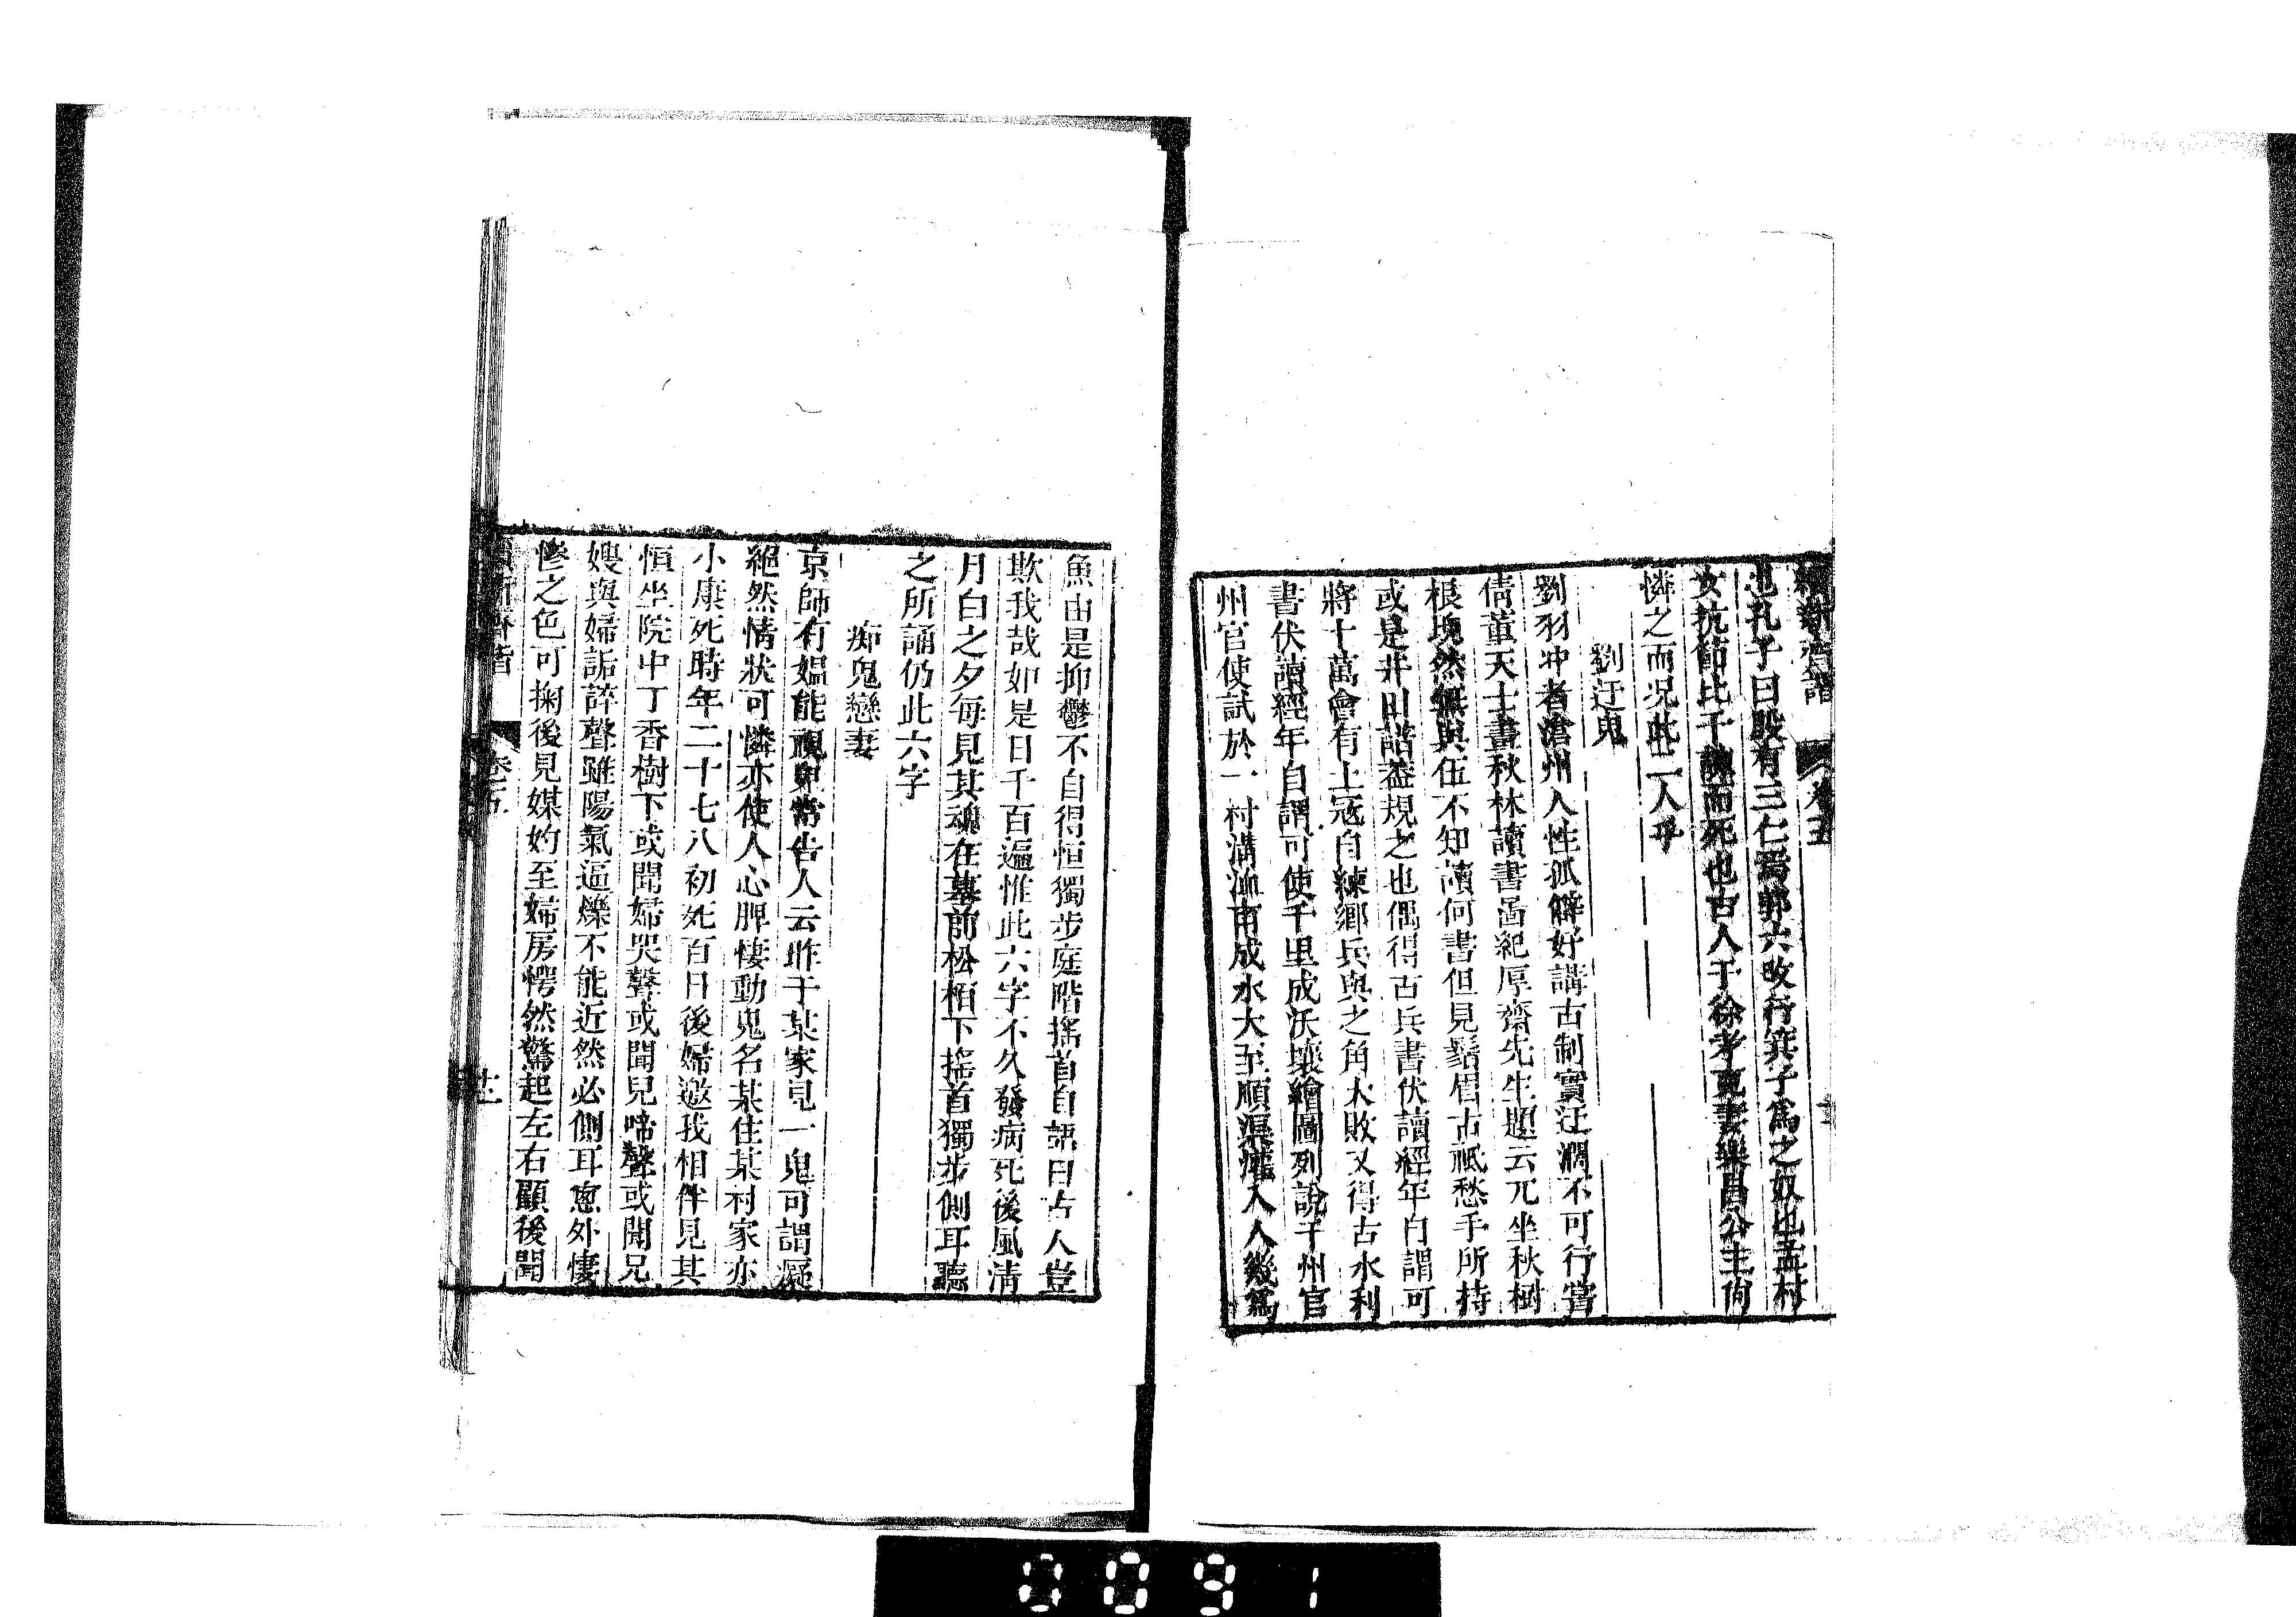 續新齊諧　卷五
也孔子曰殷有三仁焉野六攺行箕子爲之奴也孟村
女抗節比干諫而死也古人于徐孝克妻樂昌公主尙
憐之而况此二人乎
劉迂鬼
劉羽冲者滄州人性孤僻好講古制實迂濶不可行嘗
倩董天士畫秋林讀書啚紀厚齋先生題云兀坐秋樹
根塊然無與伍不知讀何書但見鬚眉古祗愁手所持
或是井田譜葢規之也偶得古兵書伏讀經年自謂可
將十萬會有土寇自練鄉兵與之角大敗又得古水利
書伏讀經年自謂可使千里成沃壤繪圖列說于州官
州官使試於一村溝洫甫成水大至順渠灌入人幾爲
魚由是抑鬱不自得恒獨步庭階搖首自語曰古人豈
欺我哉如是日千百遍惟此六字不久發病死後風淸
月白之夕每見其魂在墓前松栢下搖首獨步側耳聽
之所誦仍此六字
痴鬼戀妻
京師有媼能視鬼常告人云昨于某家見一鬼可謂癡
絕然情狀可憐亦使人心脾悽動鬼名某住某村家亦
小康死時年二十七八初死百日後婦邀我相伴見其
恒坐院中丁香樹下或聞婦哭聲或聞兒啼聲或聞兄
嫂與婦詬誶聲雖陽氣逼爍不能近然必側耳窻外悽
慘之色可掬後見媒妁至婦房愕然驚起左右顧後聞
續新齊諧　卷五